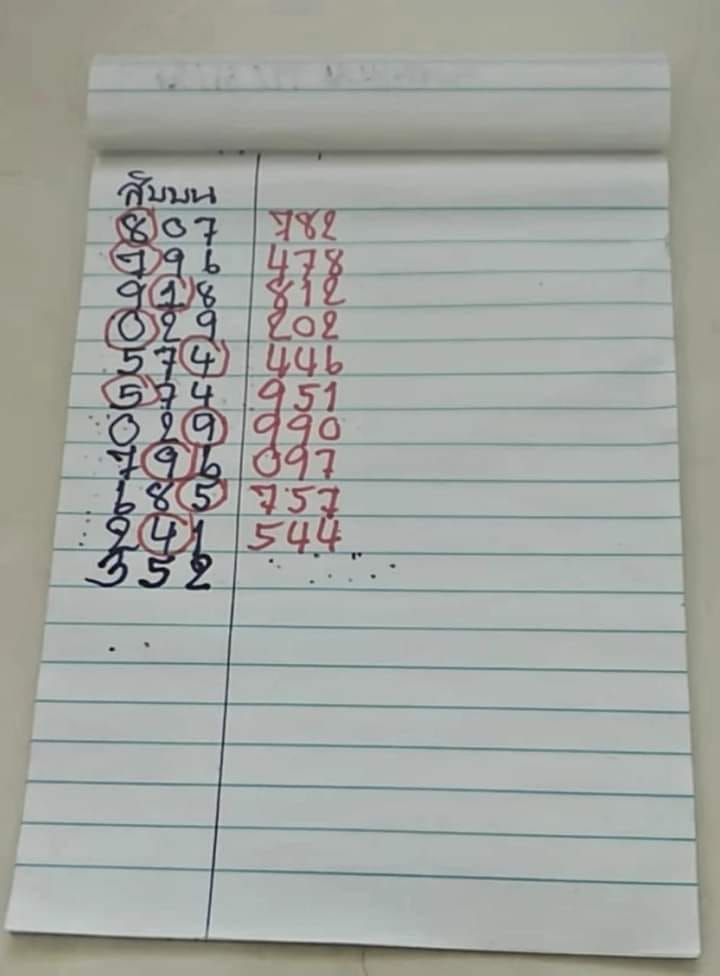 สิบบน
807 782
796 478
918 812
029 202
574 446
574 951
029 990
796 097
685 757
241 544
352